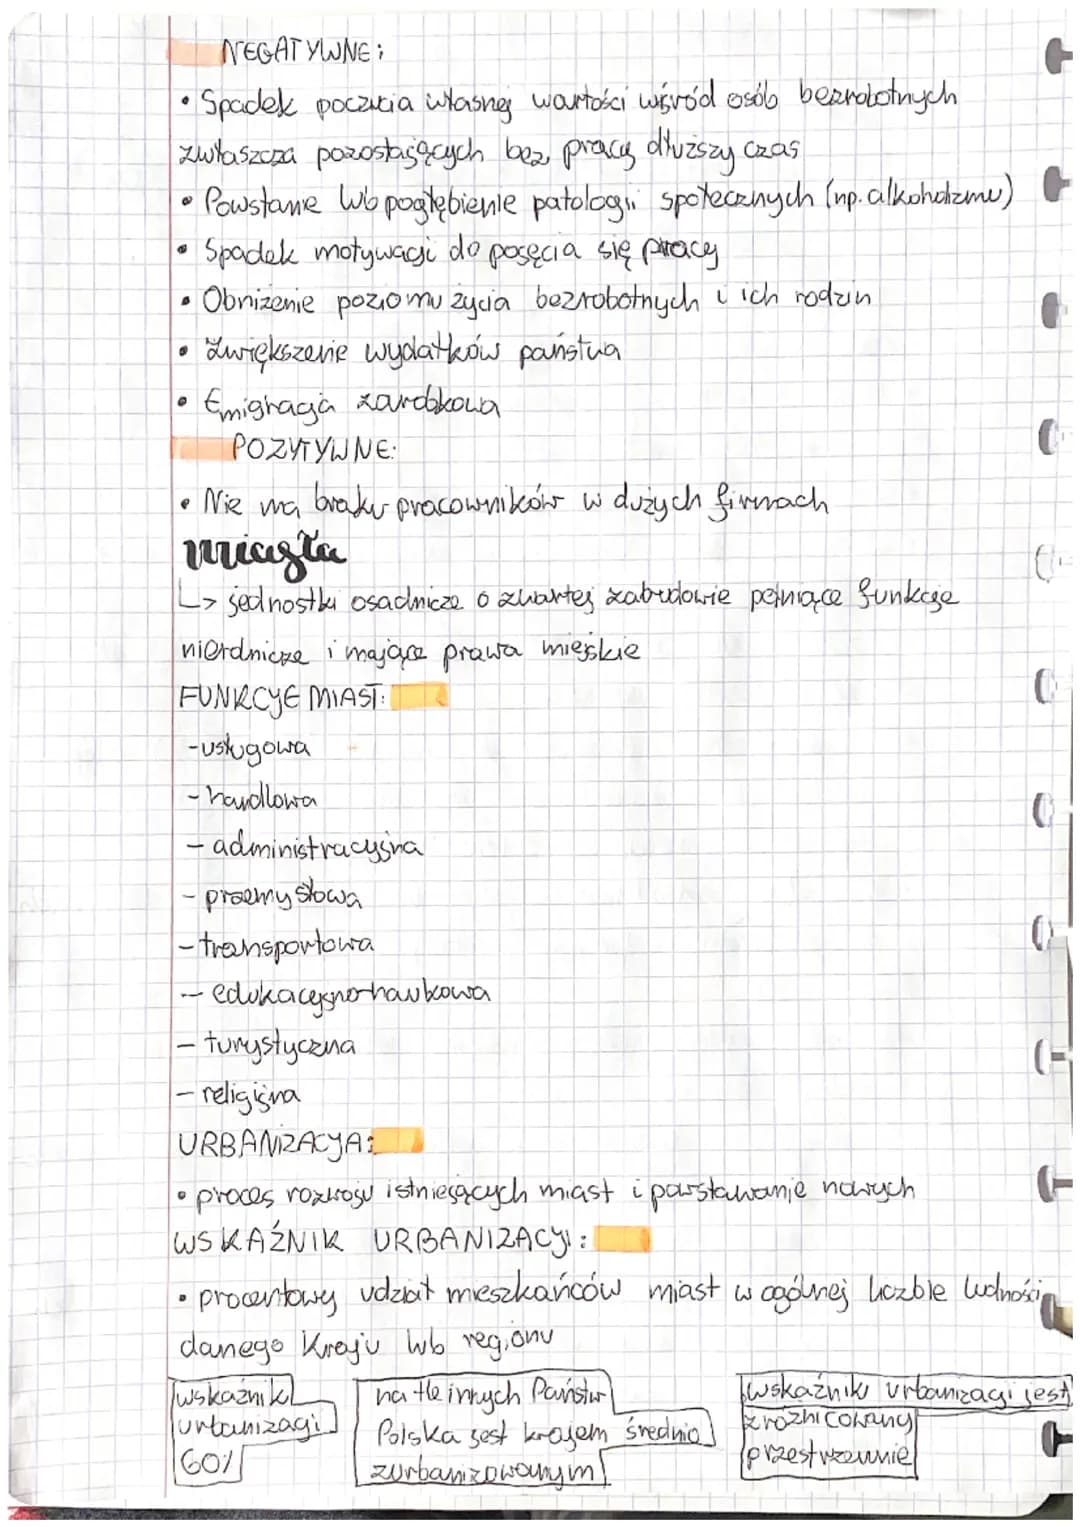 NEGATYWNE:
• Spadek poczucia własnej wartości wśród osób bezrobotnych
zwłaszcza pozostających bez pracy dłuższy czas
• Powstanie lub pogłębienie patologii społecznych (np. alkoholizmu)
• Spadek motywacji do pojęcia się pracy
• Obniżenie poziomu życia bezrobotnych i ich rodzin
• Zwiększenie wydatków państwa
• Emigracja zarobkowa
POZYTYWNE:
• Nie ma braku pracowników w dużych firmach
miasta
↳ jednostki osadnicze o zwartej zabudowie pełniące funkcje
nierolnicze i mające prawa miejskie
FUNKCJE MIAST:
-usługowa
-handlowa
- administracyjna
- przemysłowa
-transportowa
- edukacyjno-naukowa
- turystyczna
- religijna
URBANIZACJA:
• proces rozwoju istniejących miast i powstawanie nowych
WSKAŹNIK URBANIZACJI:
• procentowy udział mieszkańców miast w ogólnej liczbie ludności
danego kraju lub regionu
wskaźnik
urbanizacji
60%
na tle innych Państw
Polska jest krajem średnio
zurbanizowanym
wskaźniki urbanizacji jest
zróżnicowany
przestrzennie